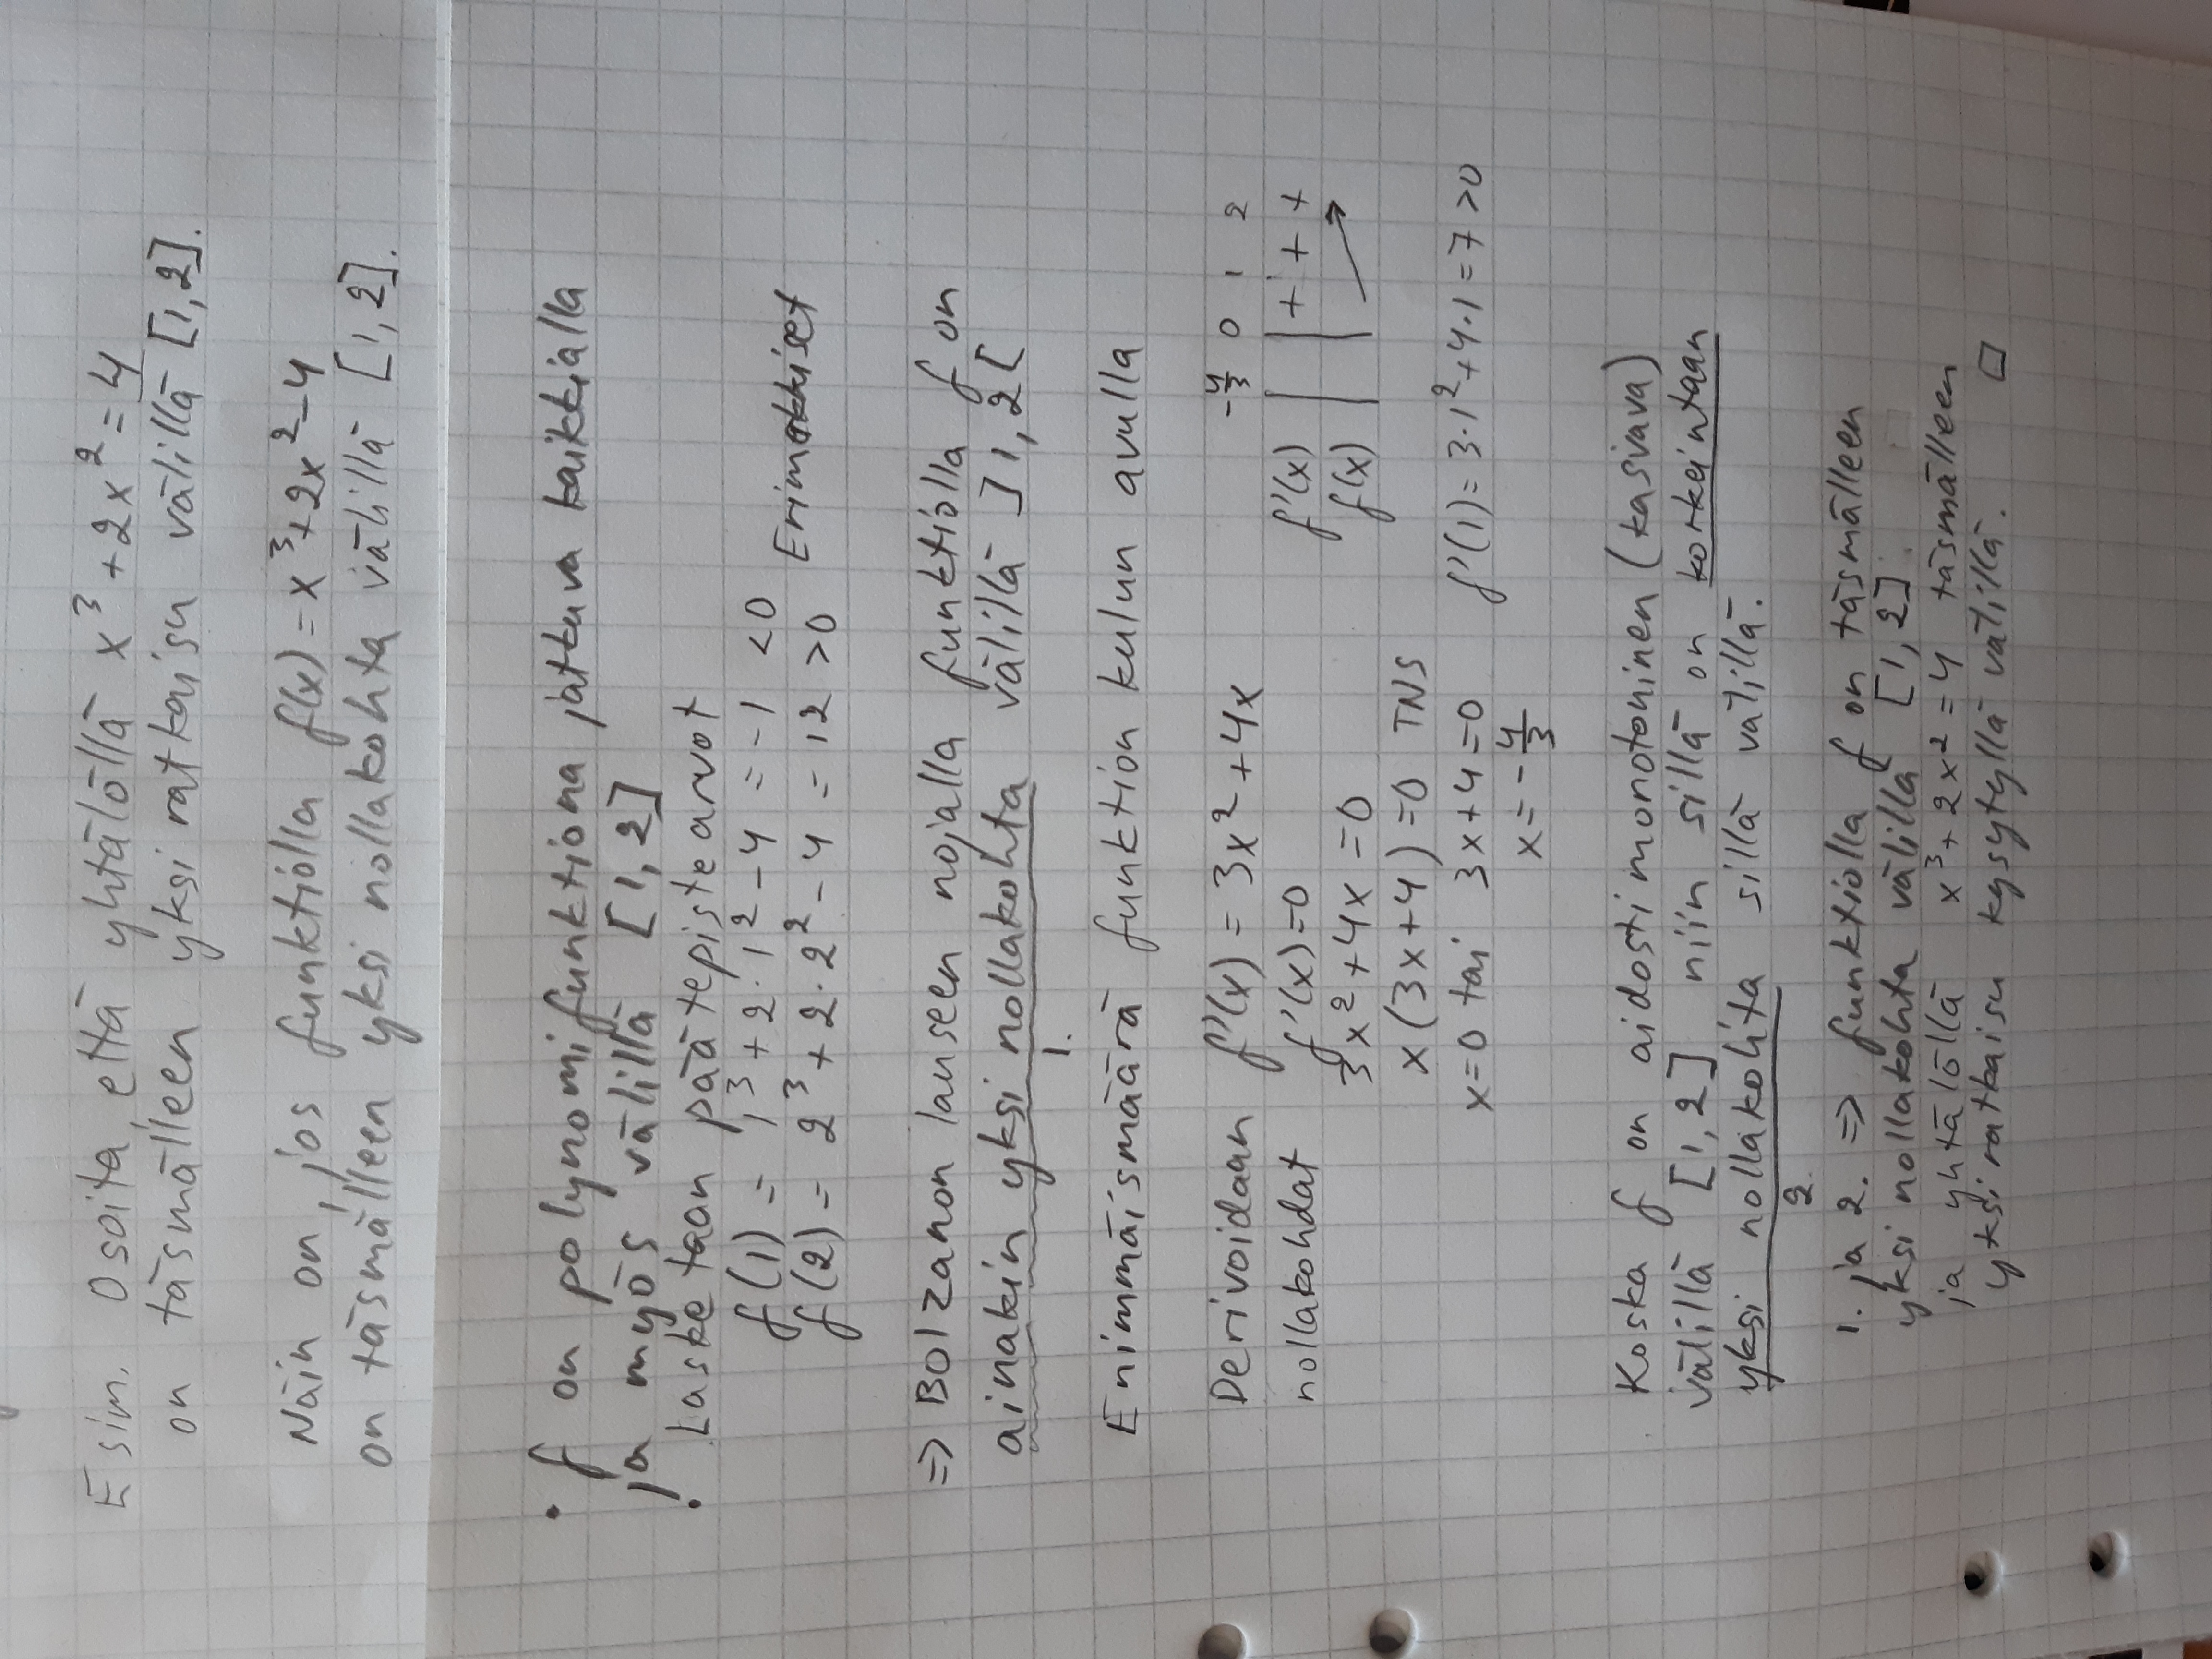 Esim. Osoita, että yhtälöllä x³ + 2x² = 4
on täsmälleen yksi ratkaisu välillä [1,2].
Näin on, jos funktiolla f(x) = x³+2x²-4
on täsmälleen yksi nollakohta välillä [1,2].
• f on polynomifunktiona jatkuva kaikkialla
ja myös välillä [1,2]
• Lasketaan päätepistearvot
f(1) = 1³ + 2·1² - 4 = -1 <0
f(2) = 2³ + 2·2² - 4 = 12 >0 Erimerkkiset
=> Bolzanon lauseen nojalla funktiolla f on
ainakin yksi nollakohta välillä ]1,2[
1.
Enimmäismäärä funktion kulun avulla
Derivoidaan f'(x) = 3x² + 4x
nollakohdat f'(x) = 0
3x² + 4x = 0
x(3x+4) = 0 TNS
x=0 tai 3x+4=0
x = -4/3
-4/3 0 1 2
f'(x) | | + + +
f(x)
f'(1) = 3·1² + 4·1 = 7 >0
Koska f on aidosti monotoninen (kasvava)
välillä [1,2] niin sillä on korkeintaan
yksi nollakohta sillä välillä.
2.
1. ja 2. => funktiolla f on täsmälleen
yksi nollakohta välillä [1,2].
ja yhtälöllä x³ + 2x² = 4 täsmälleen
yksi ratkaisu kysytyllä välillä. □